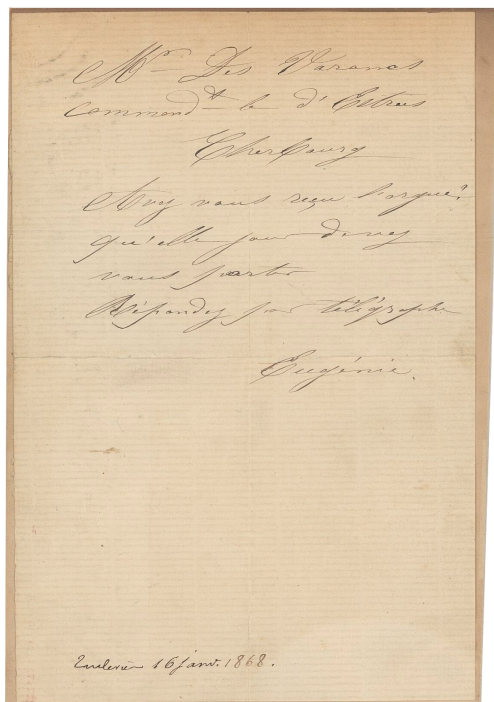 Mr Des Varannes
commandt le d'Estrées
Cherbourg
Avez vous reçu l'orgue?
qu'elle jour devez
vous partir
Répondez par télégraphe
Eugénie.
Tuileries 16 janv. 1868.